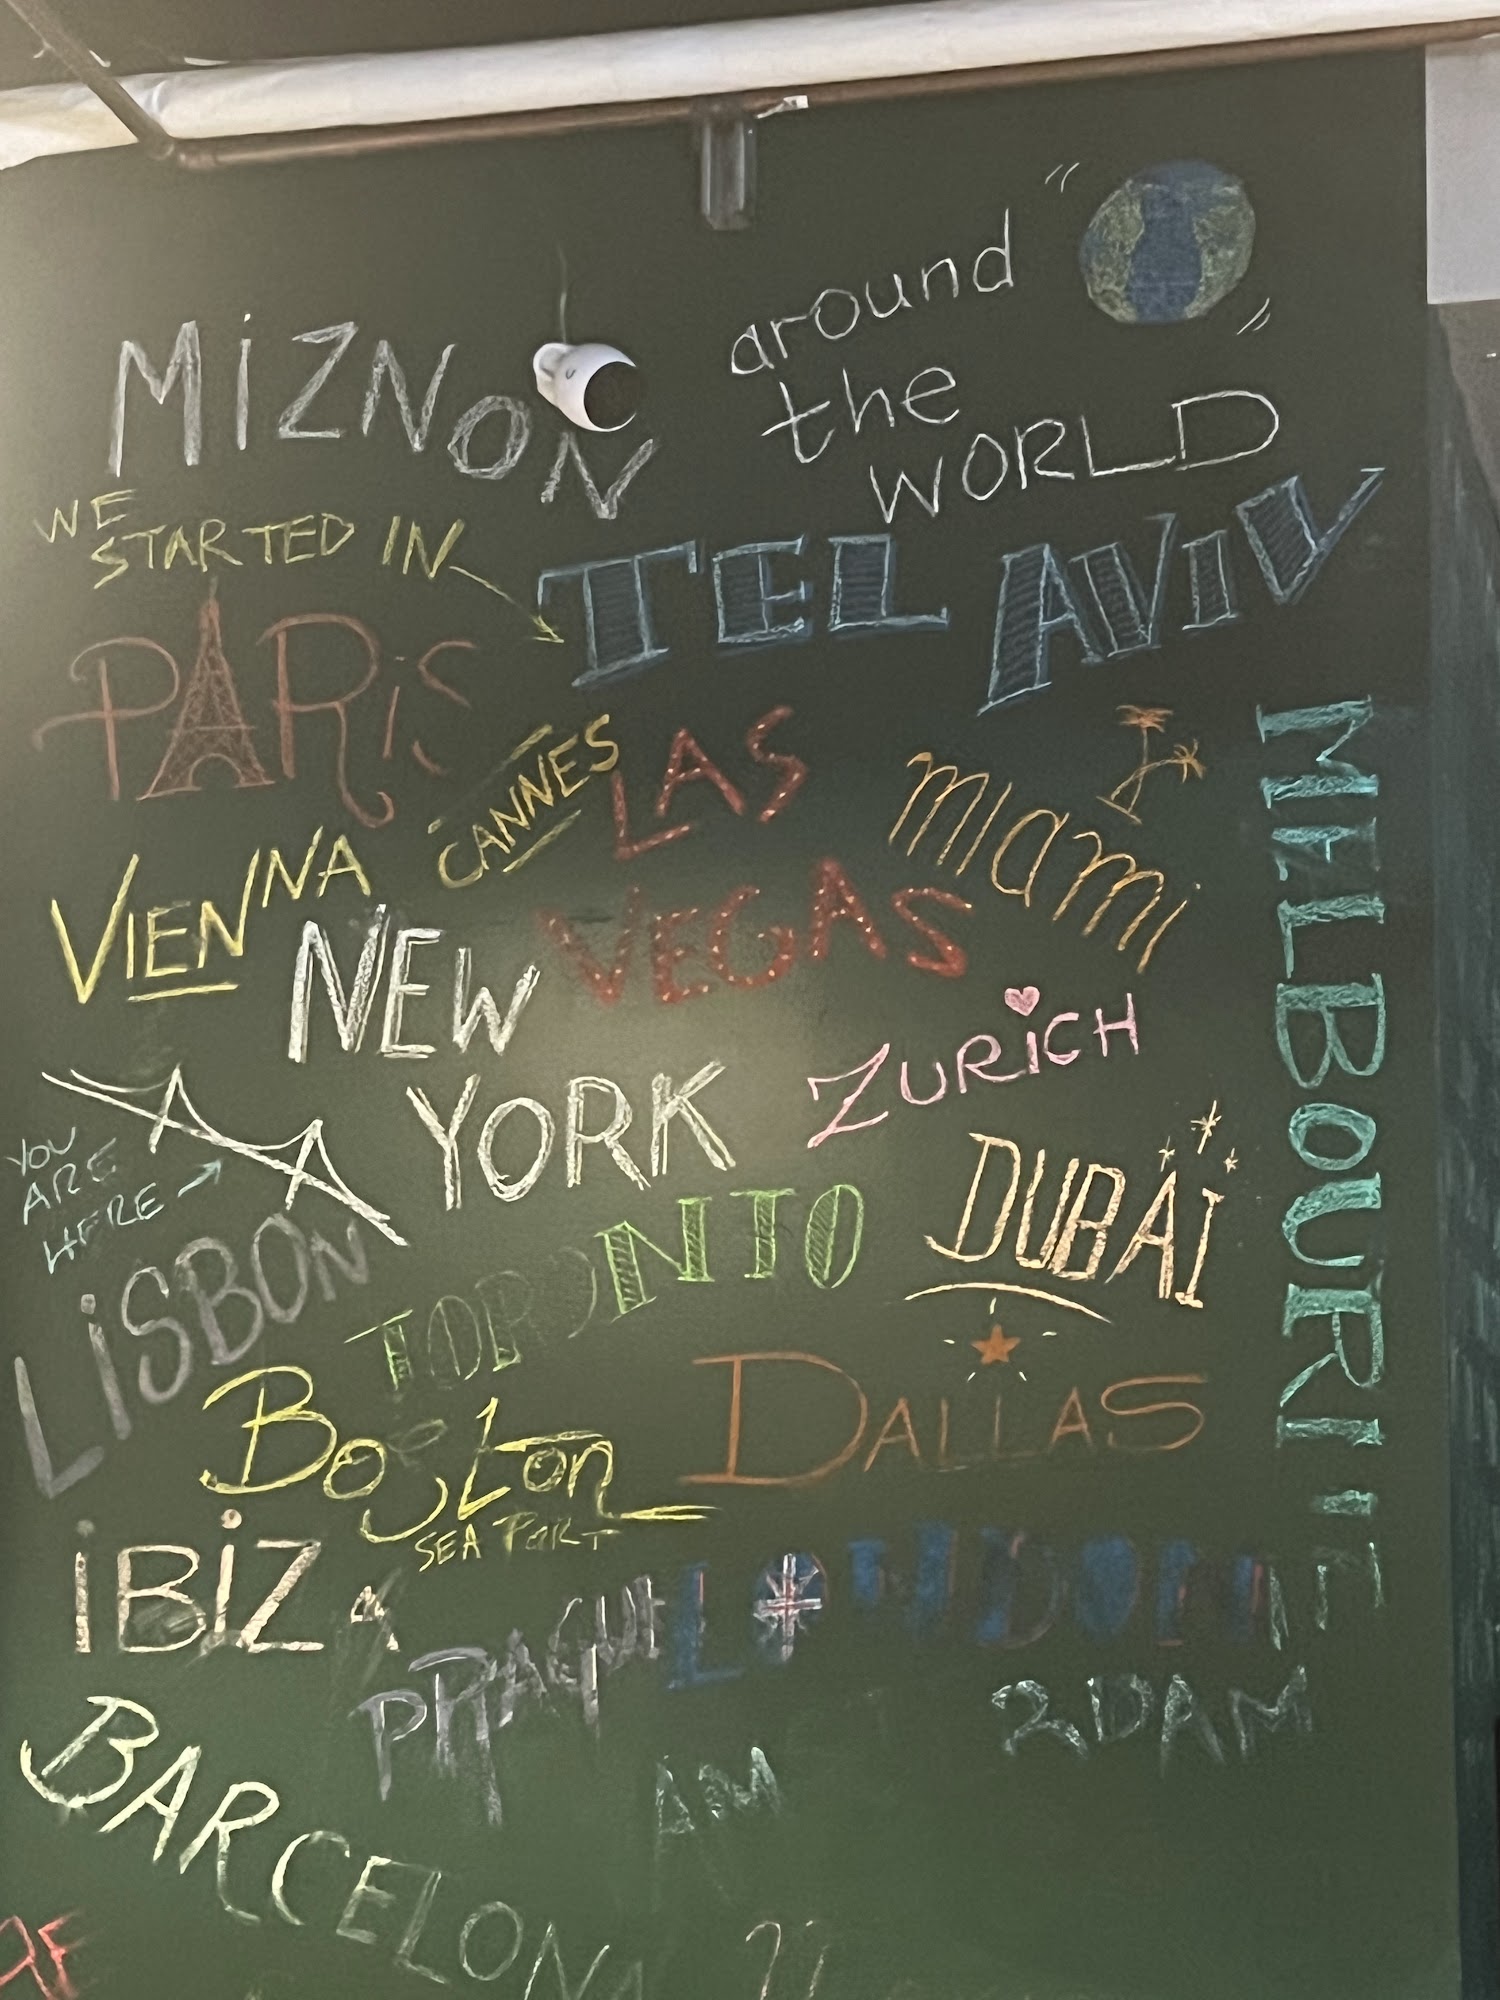 MIZNON
around
the
WORLD
WE
STARTED IN
TEL AVIV
PARIS
CANNES
LAS
VEGAS
MIAMI
MELBOURNE
VIENNA
NEW
YORK
ZURICH
YOU
ARE
HERE
DUBAI
LISBON
TORONTO
BOSTON
SEA PORT
DALLAS
IBIZA
PRAGUE
LONDON
AM
DAM
BARCELONA